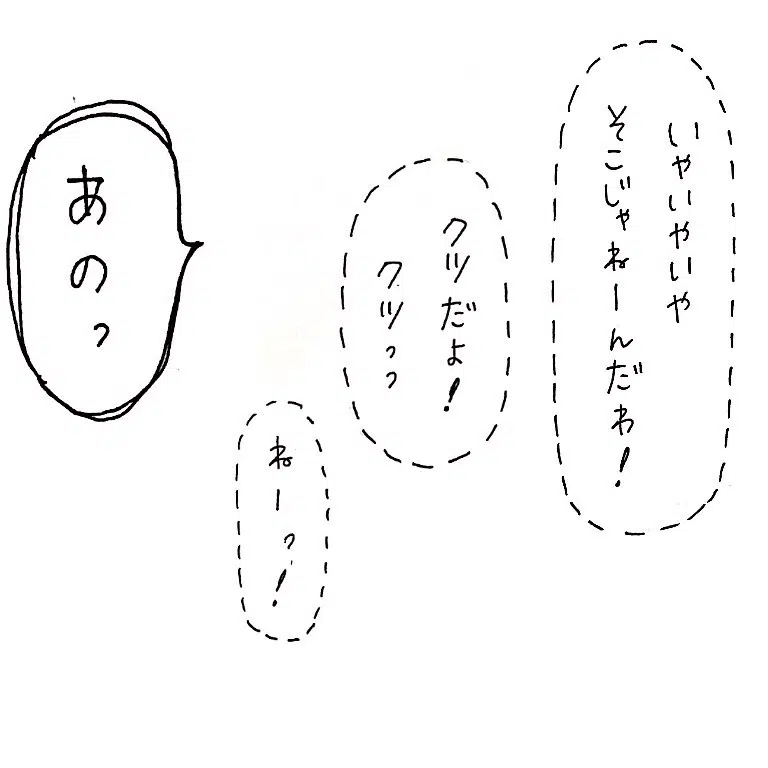 いやいやいや
そこじゃねーんだわ!
クツだよ!
クツっっ
ねーっ!
あのっ